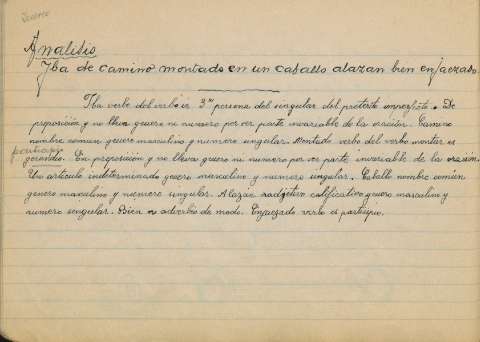 Analisis
Iba de camino montado en un caballo alazan bien enjaezado
Iba verbo del verbo ir 3ª persona del singular del preterito imperfecto. De
preposición y no lleva genero ni numero por ser parte invariable de la oración. Camino
nombre común genero masculino y numero singular. Montado verbo del verbo montar es
participio
gerundio. En preposición y no lleva genero ni numero por ser parte invariable de la oración.
Un articulo indeterminado genero masculino y numero singular. Caballo nombre común
genero masculino y numero singular. Alazán adjetivo calificativo genero masculino y
numero singular. Bien es adverbio de modo. Enjaezado verbo el participio.